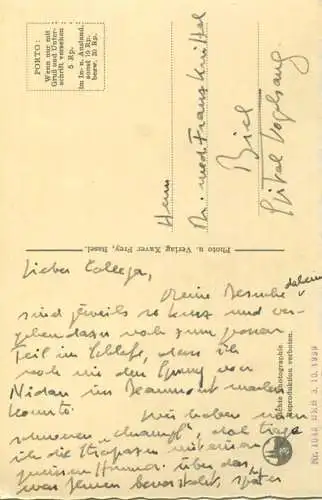 PORTO:
Wenn nur mit
Gruß und Unter-
schrift versehen
5 Rp.
im In- u. Ausland,
sonst 10 Rp.
bezw. 20 Rp.
Herrn
Dr. med Franz
Biel
Spital Vogelsang
Photo u. Verlag Xaver Frey, Basel.
Lieber Collega,
Meine Besuche daheim
sind jeweils so kurz und ver-
gehen dazu noch zum grossen
Teil im Schlaf, dass ich
noch nie den Sprung von
Nidau ins Beaumont machen
konnte. Wir haben nun
schweren, und trage
ich die Strapazen mit einem
gewissen Humor. Über das,
was jenen bevorsteht, später
Echte Photographie
Reproduktion verboten.
Nr. 1042 BRB 3. 10. 1939